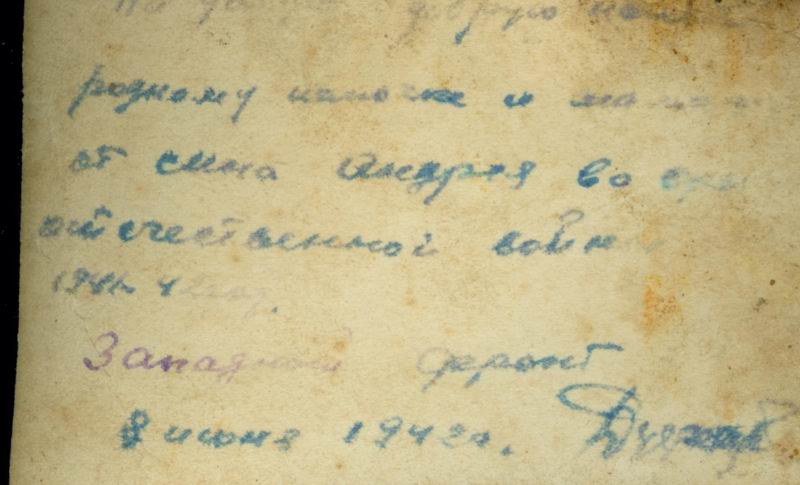 На добрую
родному папочке и мамочке
от сына Андрея во время
отечественной войны
1941-42
Западный фронт
8 июня 1942г.